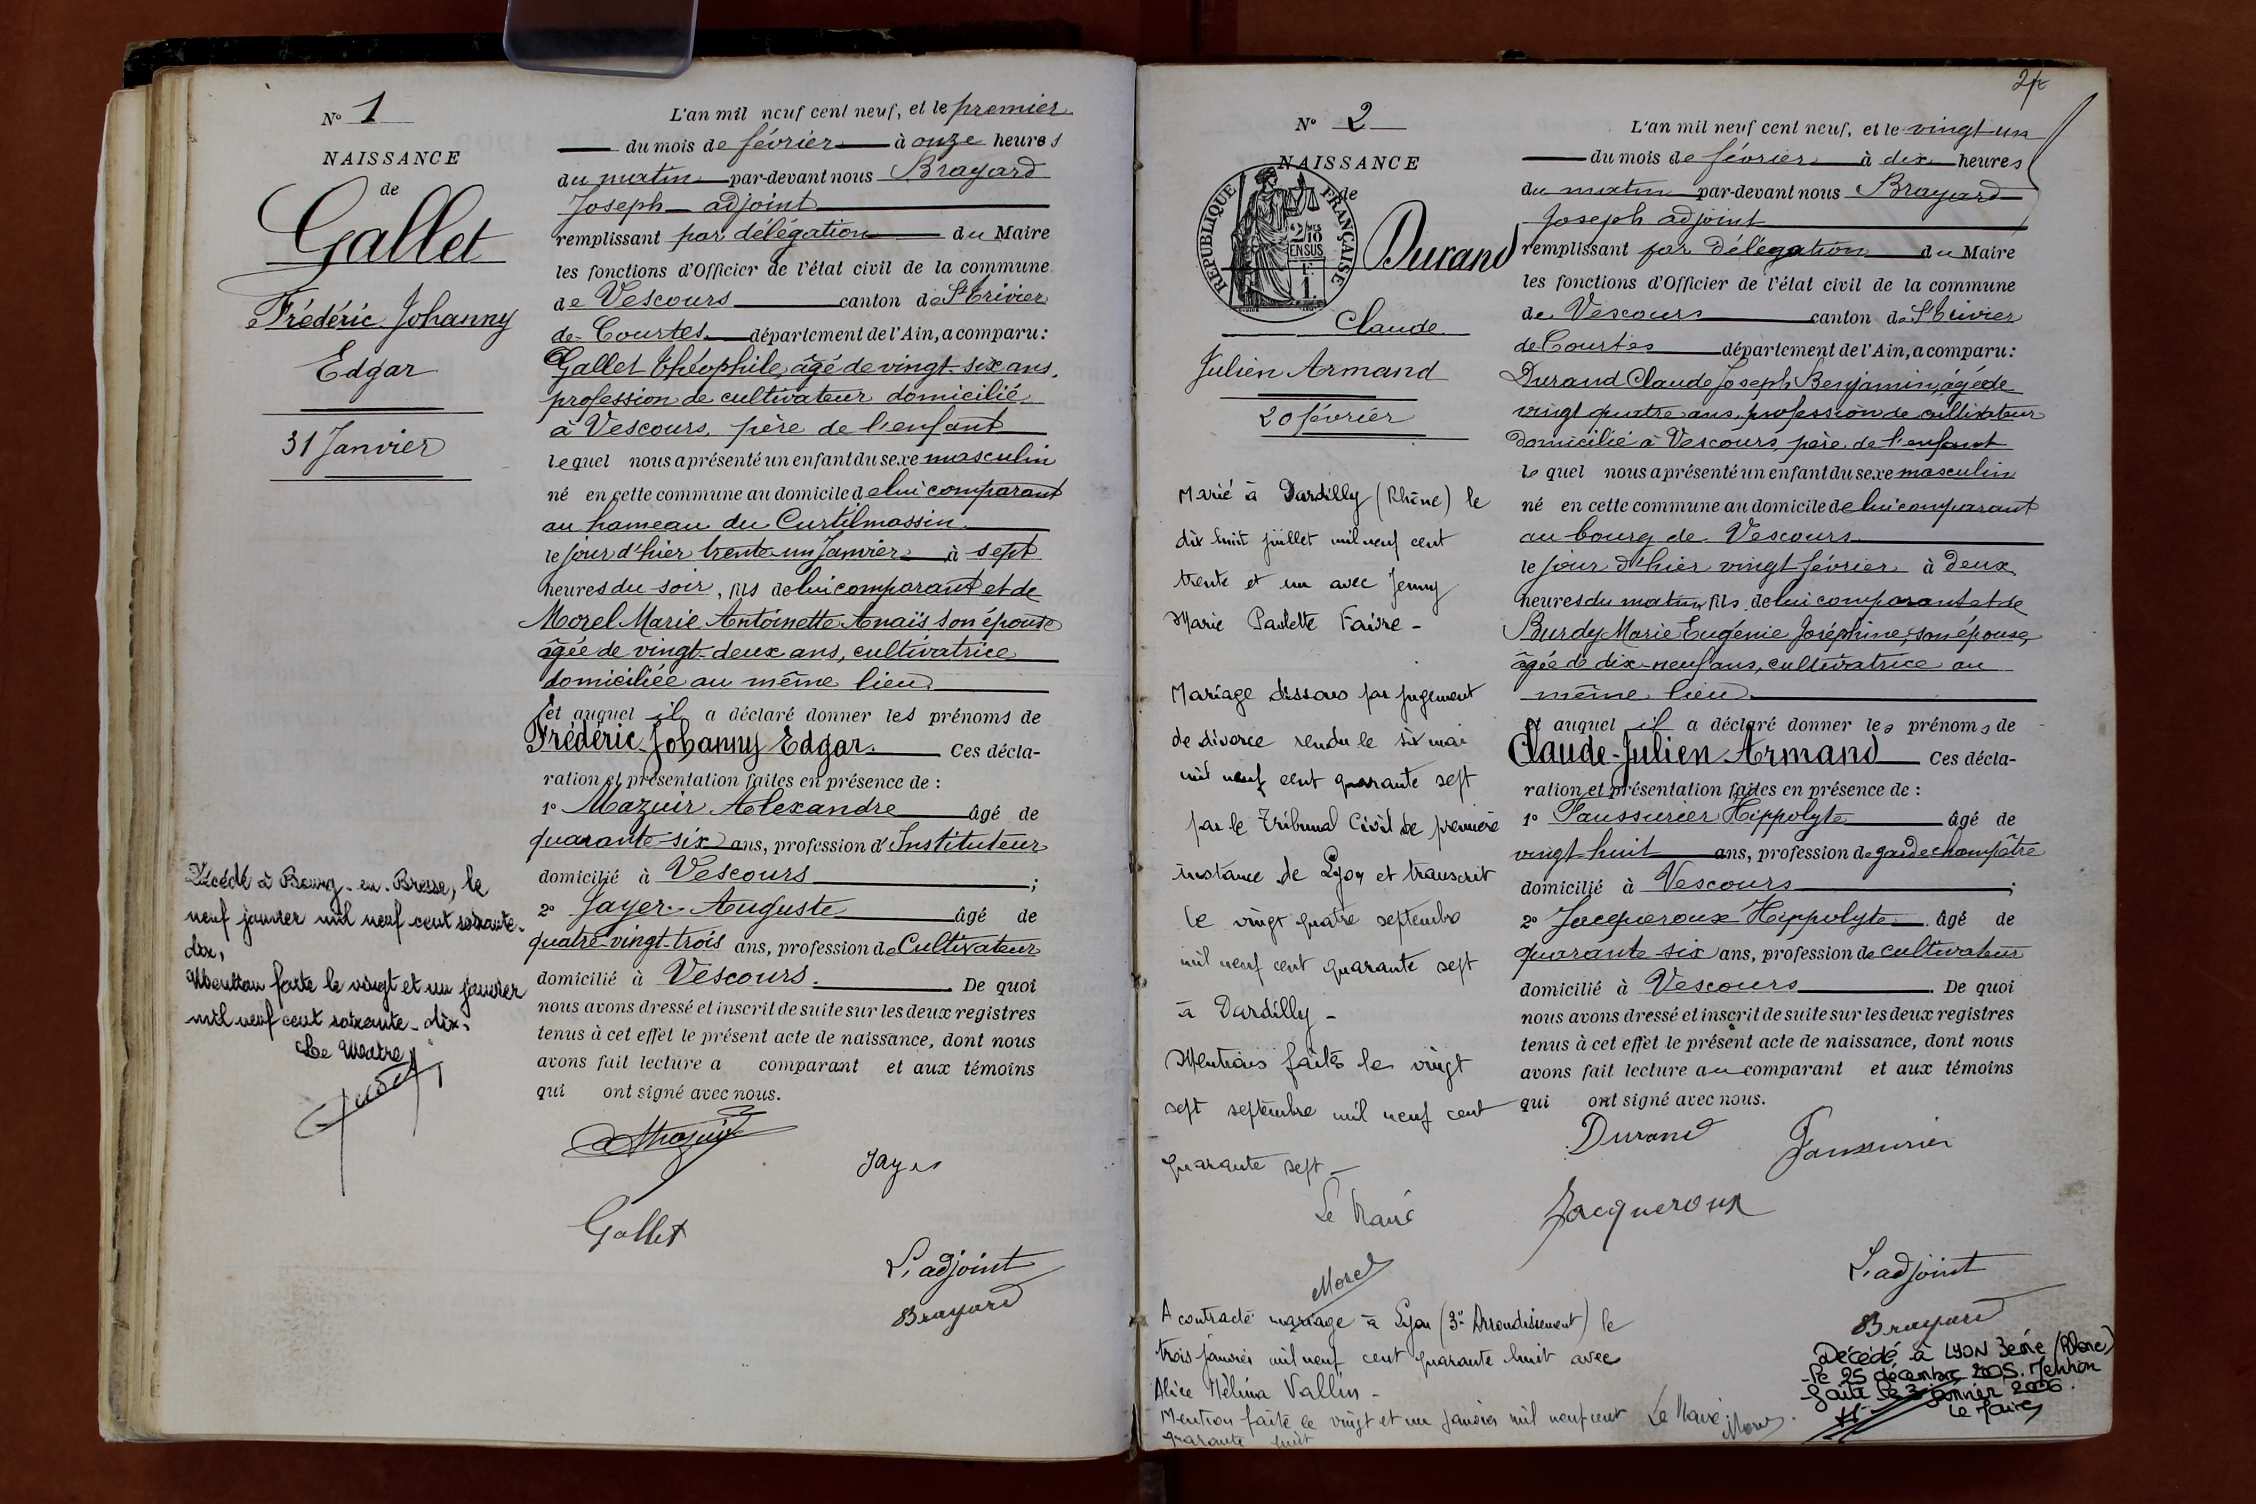 N° 1
NAISSANCE
de
Gallet
Frédéric Johanny
Edgar
31 Janvier
Décédé à Bourg-en-Bresse, le
neuf janvier mil neuf cent soixante-
dix,
Mention faite le vingt et un janvier
mil neuf cent soixante-dix.
Le Maire
L'an mil neuf cent neuf, et le premier
du mois de février à onze heures
du matin par-devant nous Brayard
Joseph adjoint
remplissant par délégation du Maire
les fonctions d'Officier de l'état civil de la commune
de Vescours canton de St Trivier
de Courtes département de l'Ain, a comparu:
Gallet Théophile, âgé de vingt-six ans,
profession de cultivateur domicilié
à Vescours, père de l'enfant
lequel nous a présenté un enfant du sexe masculin
né en cette commune au domicile de lui comparant
au hameau du Curtilmassin
le jour d'hier trente-un Janvier à sept
heures du soir, fils de lui comparant et de
Morel Marie Antoinette Anaïs son épouse
âgée de vingt-deux ans, cultivatrice
domiciliée au même lieu.
et auquel il a déclaré donner les prénoms de
Frédéric Johanny Edgar. Ces décla-
ration et présentation faites en présence de :
1° Mazuir Alexandre âgé de
quarante-six ans, profession d'Instituteur
domicilié à Vescours ;
2° Jayer Auguste âgé de
quatre-vingt-trois ans, profession de Cultivateur
domicilié à Vescours. De quoi
nous avons dressé et inscrit de suite sur les deux registres
tenus à cet effet le présent acte de naissance, dont nous
avons fait lecture a comparant et aux témoins
qui ont signé avec nous.
Mazuir
Jayer
Gallet
L'adjoint
Brayard
N° 2
NAISSANCE
de
REPUBLIQUE FRANÇAISE
2/10 EN SUS
Durand
Claude
Julien Armand
20 février
Marié à Dardilly (Rhône) le
dix huit juillet mil neuf cent
trente et un avec Jenny
Marie Paulette Faivre -
Mariage dissous par jugement
de divorce rendu le six mai
mil neuf cent quarante sept
par le Tribunal Civil de première
instance de Lyon et transcrit
le vingt quatre septembre
mil neuf cent quarante sept
à Dardilly -
Mentions faites le vingt
sept septembre mil neuf cent
quarante sept -
Le Maire
Morel
A contracté mariage à Lyon (3e Arrondissement) le
trois janvier mil neuf cent quarante huit avec
Alice Mélina Vallin -
Mention faite le vingt et un janvier mil neuf cent
quarante huit
Le Maire
Morel
L'an mil neuf cent neuf, et le vingt-un
du mois de février à dix heures
du matin par-devant nous Brayard
Joseph adjoint
remplissant par délégation du Maire
les fonctions d'Officier de l'état civil de la commune
de Vescours canton de St Trivier
de Courtes département de l'Ain, a comparu:
Durand Claude Joseph Benjamin, âgé de
vingt quatre ans, profession de cultivateur
domicilié à Vescours, père de l'enfant
lequel nous a présenté un enfant du sexe masculin
né en cette commune au domicile de lui comparant
au bourg de Vescours
le jour d'hier vingt février à deux
heures du matin, fils de lui comparant et de
Burdy Marie Eugénie Joséphine, son épouse,
âgée de dix-neuf ans, cultivatrice au
même lieu.
et auquel il a déclaré donner les prénoms de
Claude-Julien Armand Ces décla-
ration et présentation faites en présence de :
1° Faussurier Hippolyte âgé de
vingt-huit ans, profession de garde champêtre
domicilié à Vescours ;
2° Jacqueroux Hippolyte âgé de
quarante-six ans, profession de cultivateur
domicilié à Vescours. De quoi
nous avons dressé et inscrit de suite sur les deux registres
tenus à cet effet le présent acte de naissance, dont nous
avons fait lecture au comparant et aux témoins
qui ont signé avec nous.
Durand
Faussurier
Jacqueroux
L'adjoint
Brayard
Décédé à LYON 3ème (Rhône)
le 25 décembre 2005. Mention
faite le 3 janvier 2006.
Le Maire